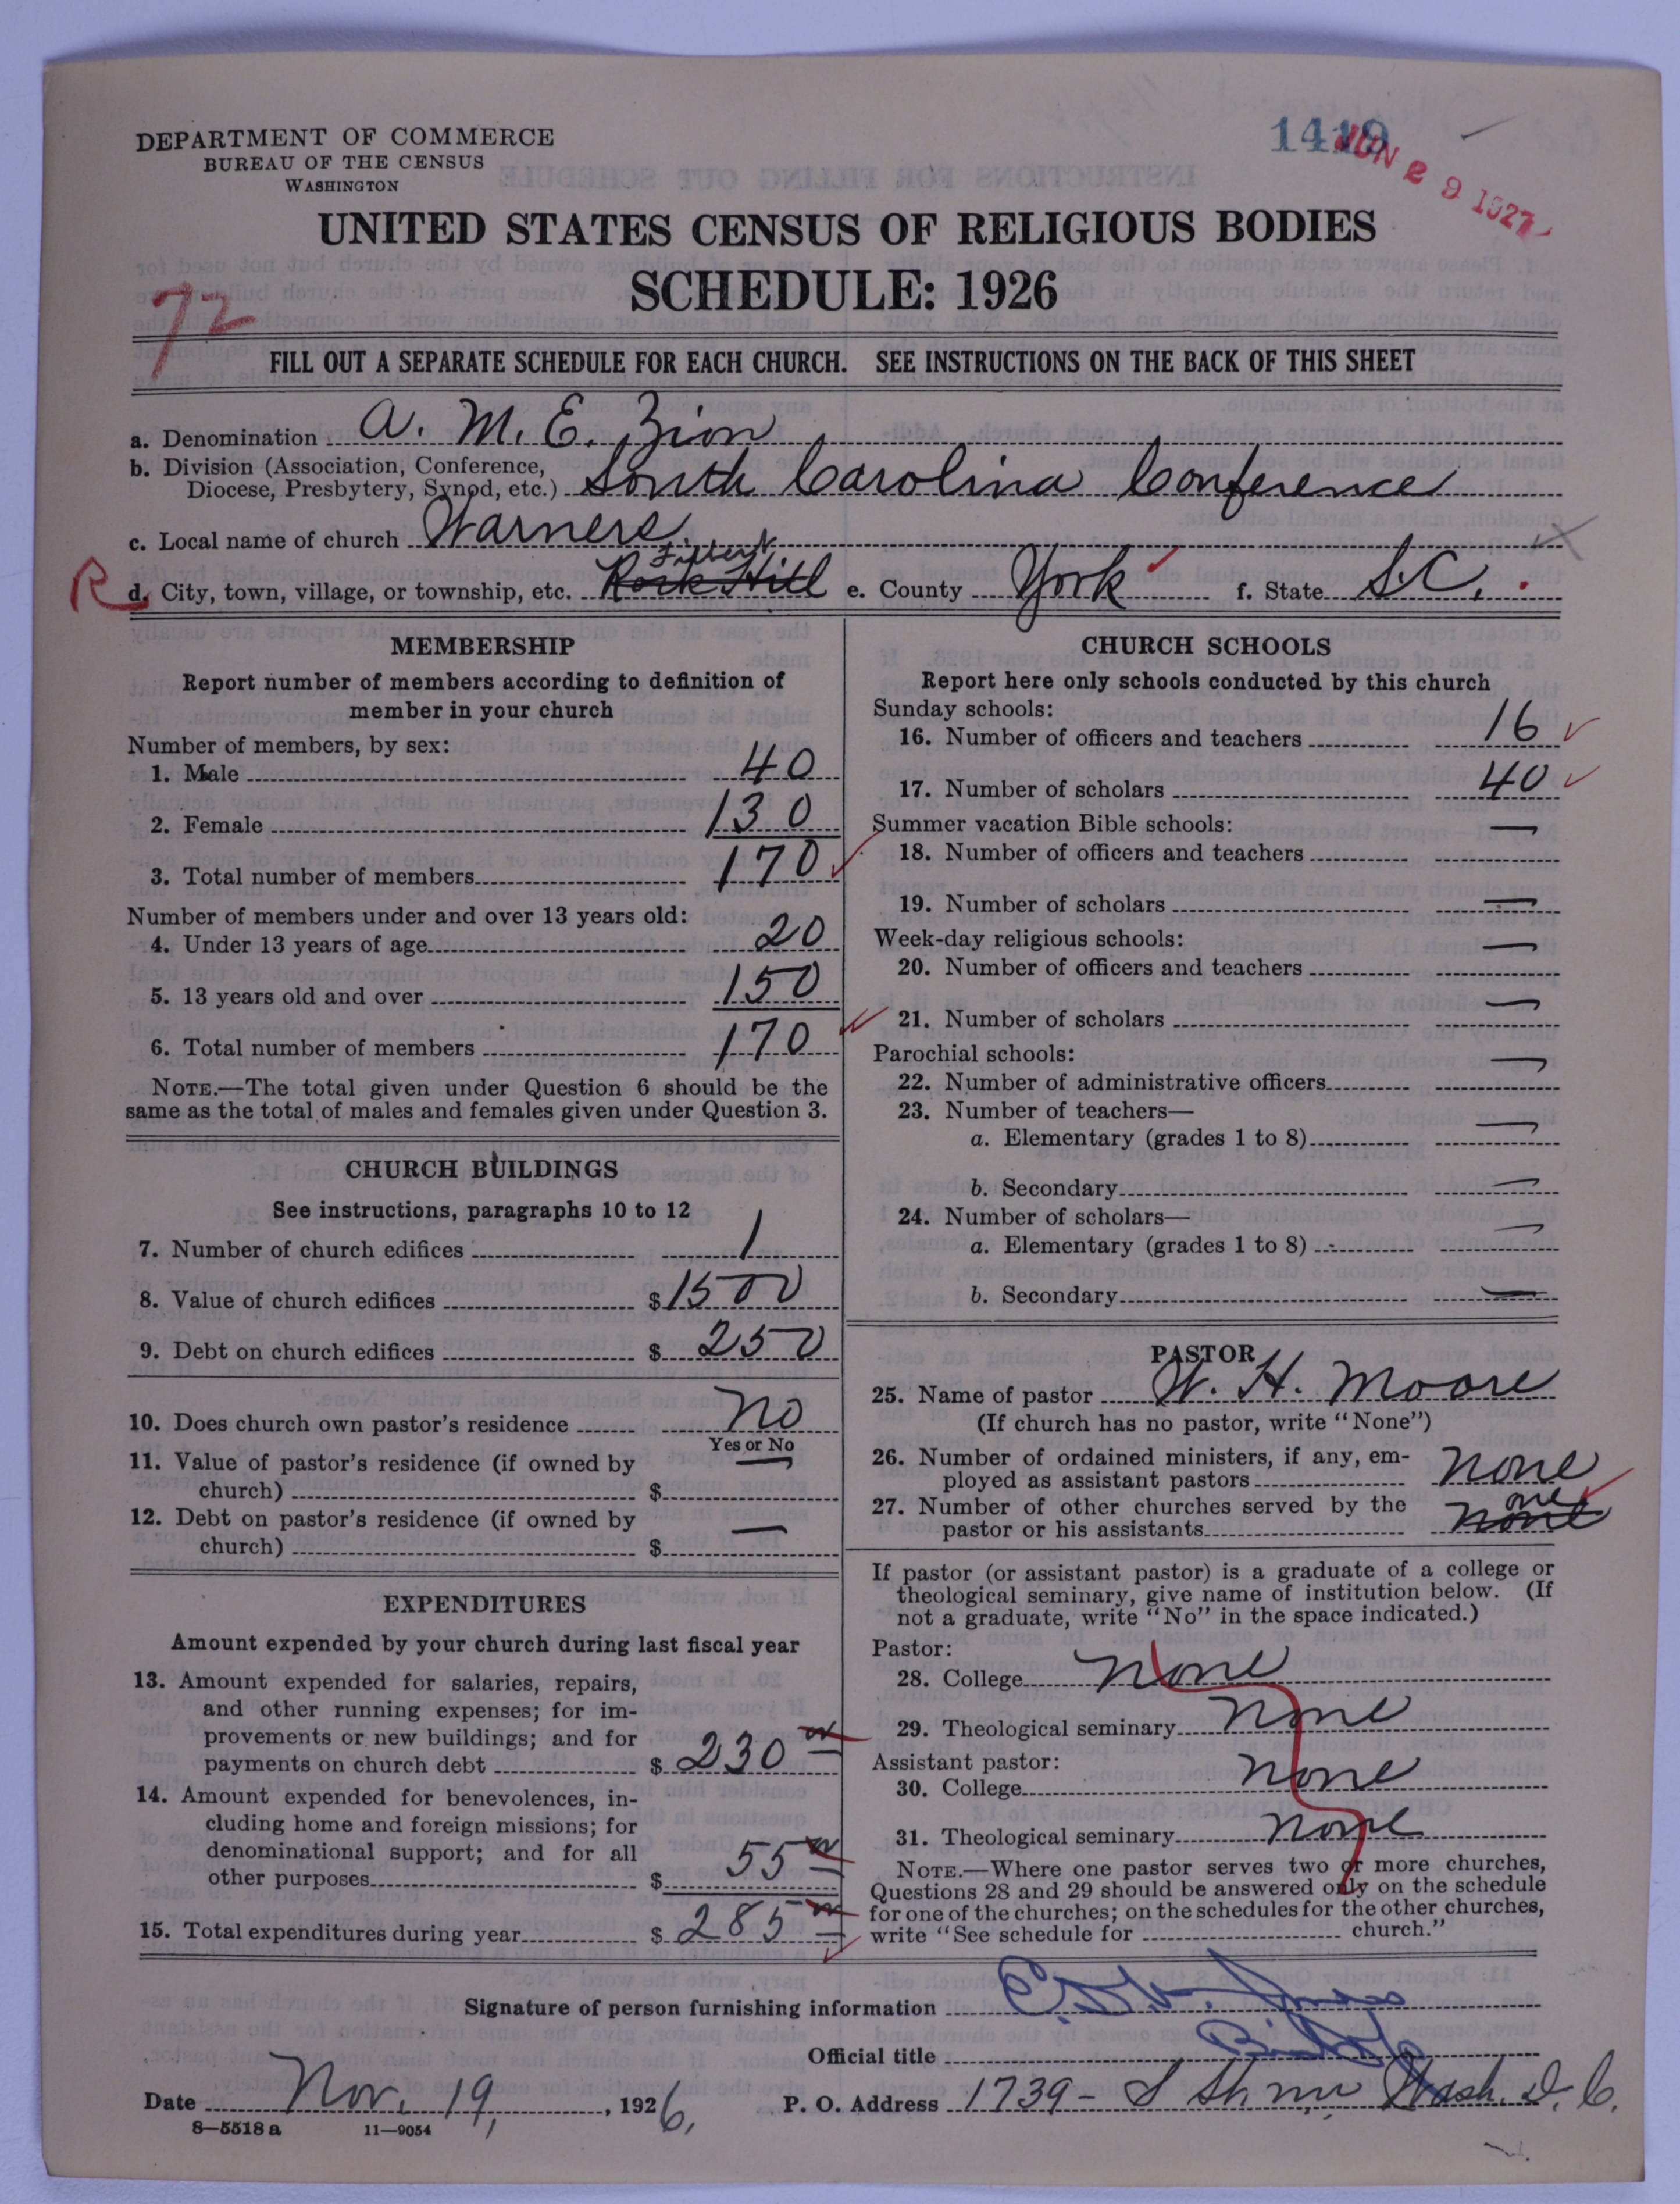 DEPARTMENT OF COMMERCE
BUREAU OF THE CENSUS
WASHINGTON
1419
JUN 29 1927
UNITED STATES CENSUS OF RELIGIOUS BODIES
SCHEDULE: 1926
72
FILL OUT A SEPARATE SCHEDULE FOR EACH CHURCH. SEE INSTRUCTIONS ON THE BACK OF THIS SHEET
a. Denomination A. M. E. Zion
b. Division (Association, Conference,
Diocese, Presbytery, Synod, etc.) South Carolina Conference
c. Local name of church Warners.
Filbert
R d. City, town, village, or township, etc. Rock Hill e. County York f. State S.C.
MEMBERSHIP
Report number of members according to definition of
member in your church
Number of members, by sex:
1. Male 40
2. Female 130
3. Total number of members 170
Number of members under and over 13 years old:
4. Under 13 years of age 20
5. 13 years old and over 150
6. Total number of members 170
NOTE.—The total given under Question 6 should be the
same as the total of males and females given under Question 3.
CHURCH BUILDINGS
See instructions, paragraphs 10 to 12
7. Number of church edifices 1
8. Value of church edifices $1500
9. Debt on church edifices $250
10. Does church own pastor's residence No
Yes or No
11. Value of pastor's residence (if owned by
church) $ —
12. Debt on pastor's residence (if owned by
church) $ —
EXPENDITURES
Amount expended by your church during last fiscal year
13. Amount expended for salaries, repairs,
and other running expenses; for im-
provements or new buildings; and for
payments on church debt $230
14. Amount expended for benevolences, in-
cluding home and foreign missions; for
denominational support; and for all
other purposes $55
15. Total expenditures during year $285
CHURCH SCHOOLS
Report here only schools conducted by this church
Sunday schools:
16. Number of officers and teachers 16
17. Number of scholars 40
Summer vacation Bible schools:
18. Number of officers and teachers —
19. Number of scholars —
Week-day religious schools:
20. Number of officers and teachers —
21. Number of scholars —
Parochial schools:
22. Number of administrative officers —
23. Number of teachers—
a. Elementary (grades 1 to 8) —
b. Secondary —
24. Number of scholars—
a. Elementary (grades 1 to 8) —
b. Secondary —
PASTOR
25. Name of pastor W. H. Moore
(If church has no pastor, write "None")
26. Number of ordained ministers, if any, em-
ployed as assistant pastors None
27. Number of other churches served by the one
pastor or his assistants None
If pastor (or assistant pastor) is a graduate of a college or
theological seminary, give name of institution below. (If
not a graduate, write "No" in the space indicated.)
Pastor:
28. College None
29. Theological seminary None
Assistant pastor:
30. College None
31. Theological seminary None
NOTE.—Where one pastor serves two or more churches,
Questions 28 and 29 should be answered only on the schedule
for one of the churches; on the schedules for the other churches,
write "See schedule for church."
Signature of person furnishing information Jones
Official title Bishop
Date Nov. 19, 1926, P. O. Address 1739 - S St. nw Wash. D. C.
8—5518 a 11—9054